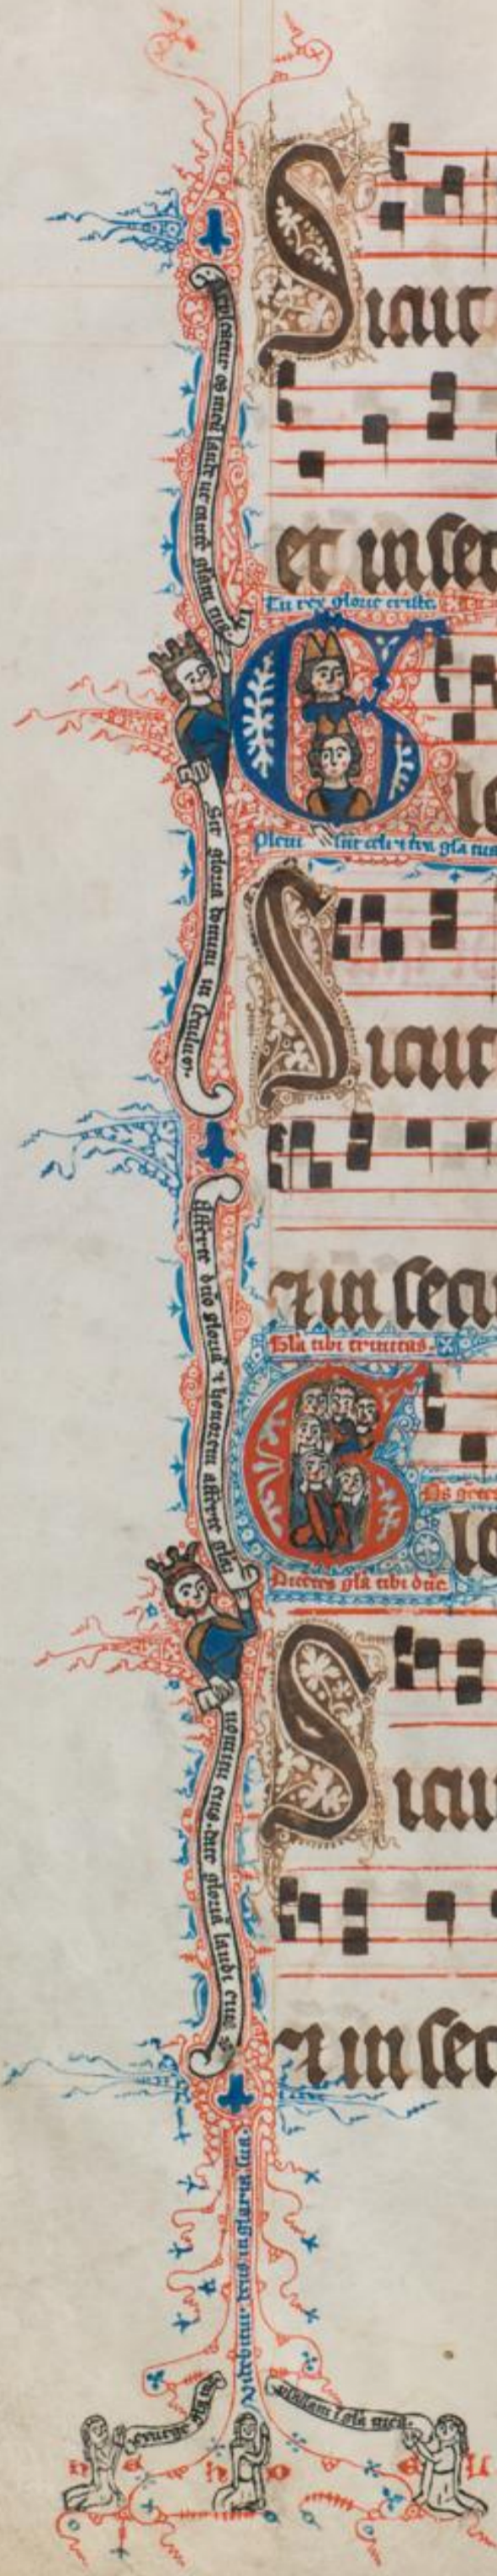 Sicut
Repleatur os meū laude ut cantē glām tuā.
et in sec
Tu rex glorie criste.
Glo
Pleni sūt celi ⁊ terra gla tua
Sit gloria domini in seculū.
Sicut
⁊ in secu
Afferte dño gloriā ⁊ honorem afferte glā
Gla tibi trinitas.
Glo
Dicētes glā tibi dñe.
nomini eius. date gloriā laudi eius
Sicut
⁊ in sec
Videbitur deus in gloria sua.
exurge glā mea
psallam ī glā mea.